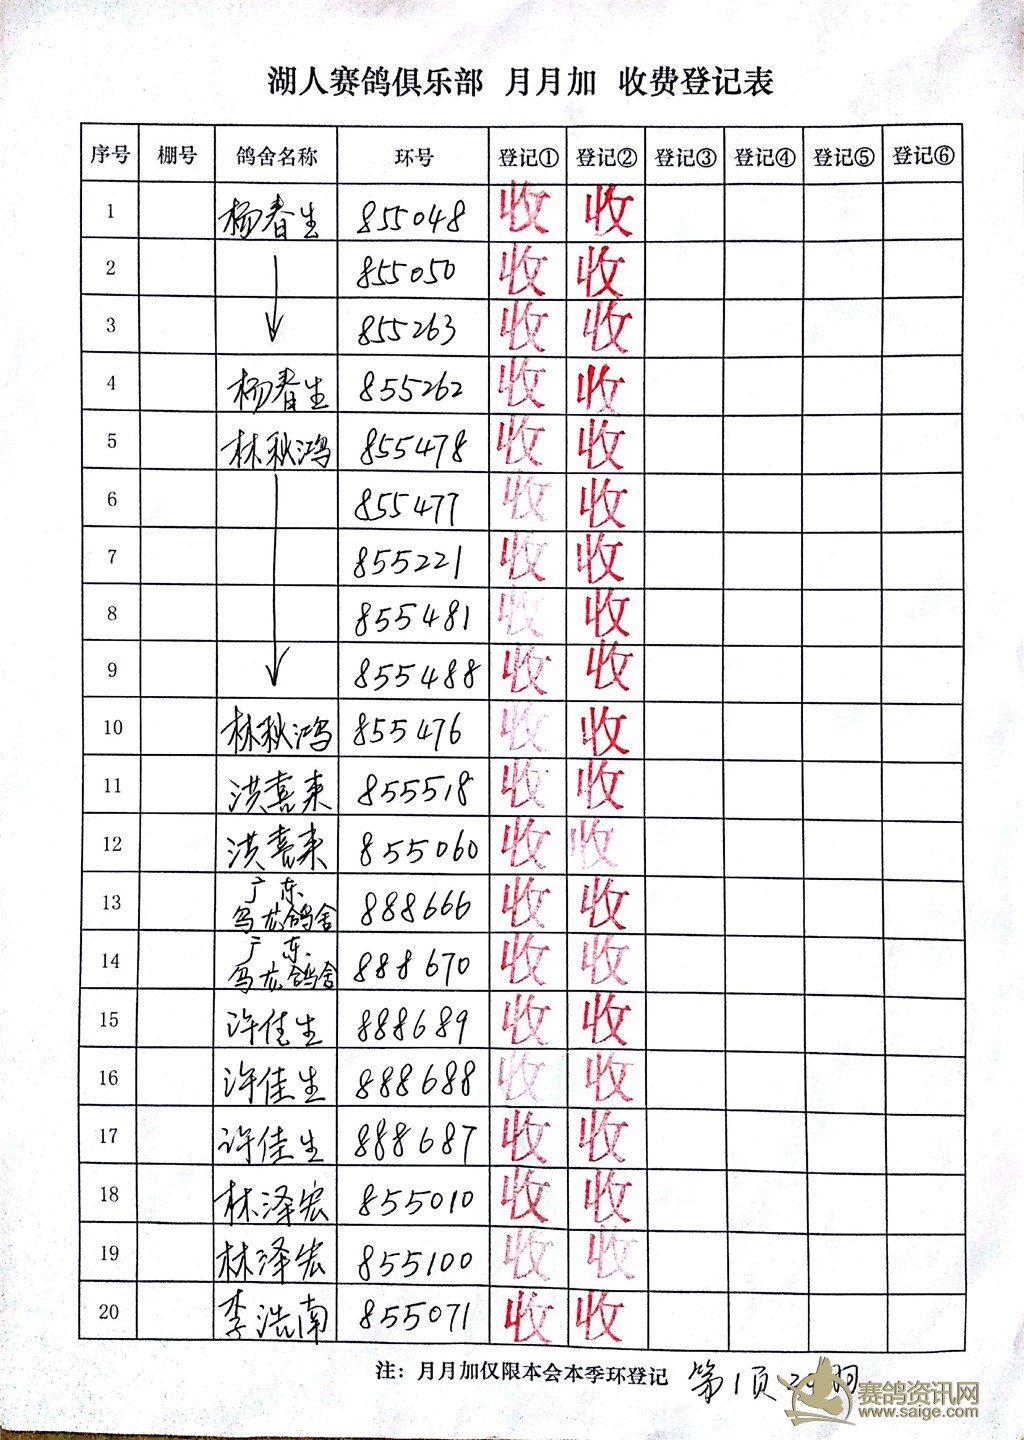 湖人赛鸽俱乐部 月月加 收费登记表
序号 棚号 鸽舍名称 环号 登记① 登记② 登记③ 登记④ 登记⑤ 登记⑥
1 杨春生 855048 收 收
2 855050 收 收
3 855263 收 收
4 杨春生 855262 收 收
5 林秋鸿 855478 收 收
6 855477 收 收
7 855221 收 收
8 855481 收 收
9 855488 收 收
10 林秋鸿 855476 收 收
11 洪喜来 855518 收 收
12 洪喜来 855060 收 收
13 广东 乌龙鸽舍 888666 收 收
14 广东 乌龙鸽舍 888670 收 收
15 许佳生 888689 收 收
16 许佳生 888688 收 收
17 许佳生 888687 收 收
18 林泽宏 855010 收 收
19 林泽宏 855100 收 收
20 李浩南 855071 收 收
注：月月加仅限本会本季环登记 第1页 20羽
赛鸽资讯网
www.saige.com